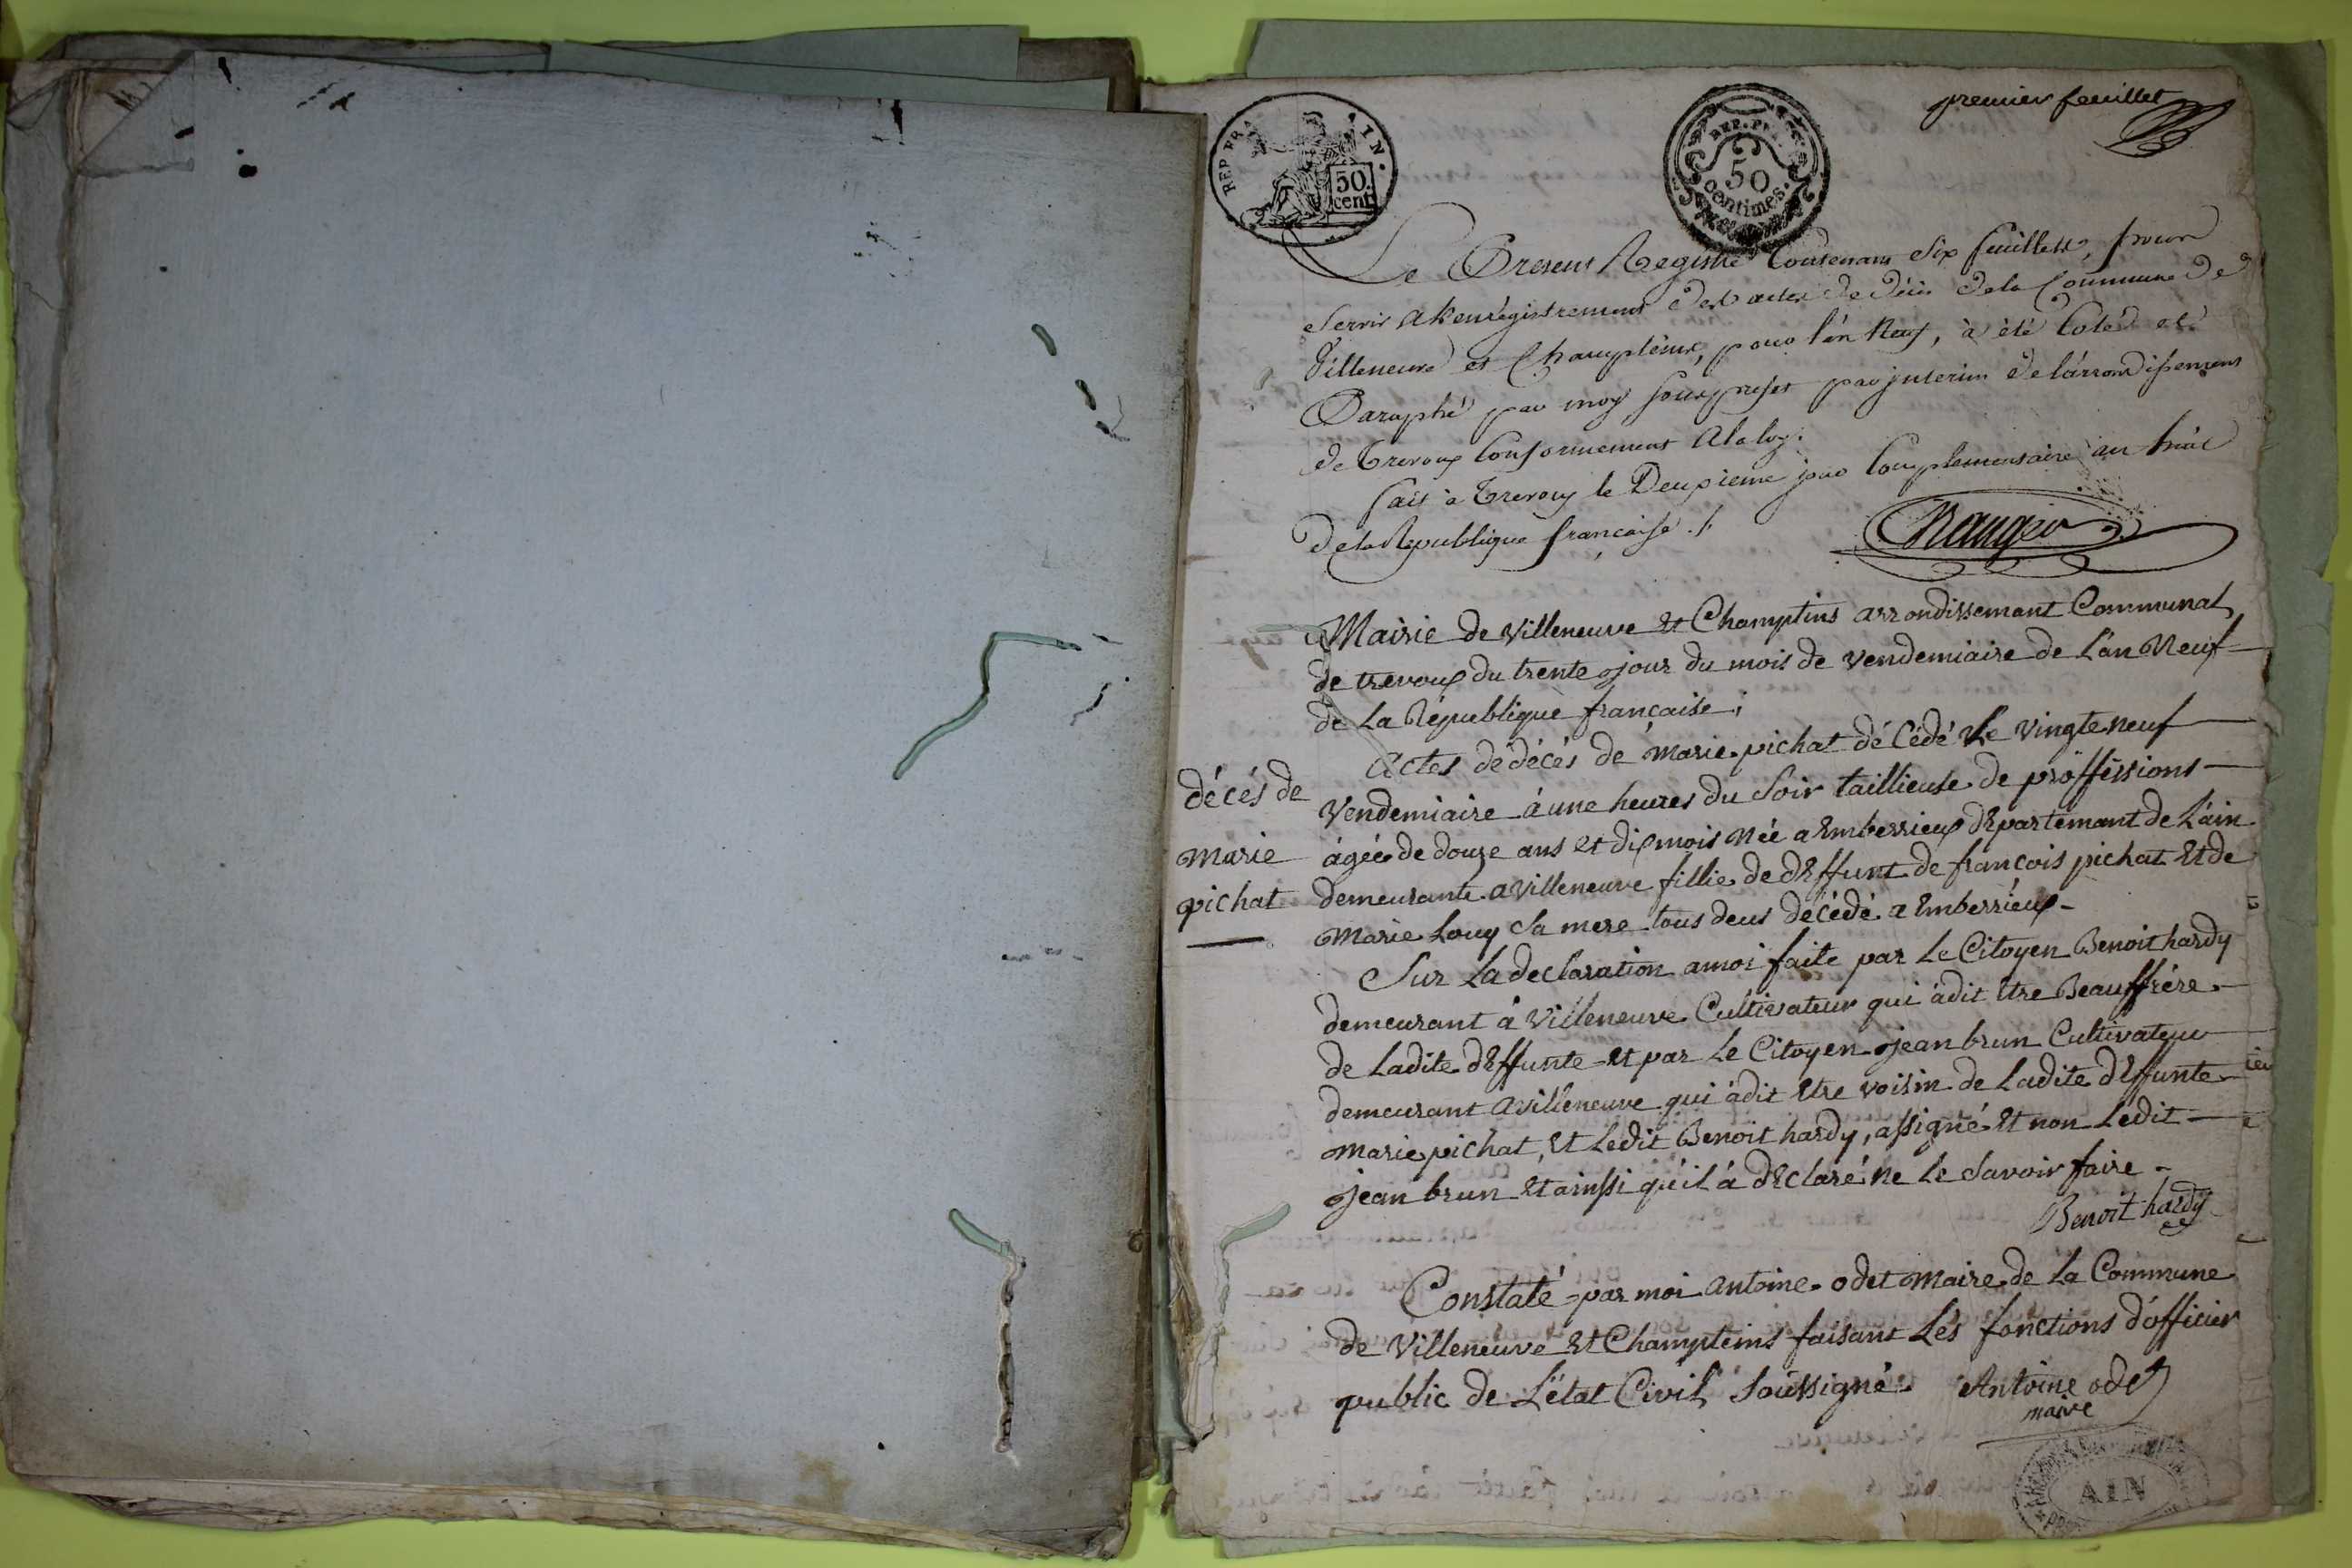 premier feuillet
REP. FRA AIN.
50.
cent.
REP. F
50
centimes.
Le Present Registre Contenant Six feuillets, pour
Servir a l'enregistrement des actes de décès de la Commune de
Villeneuve et Champteins, pour l'an Neuf, à été Coté et
Paraphé par moy Sousprefet par interim de l'arrondissement
de Trevoux Conformement A la loy.
fait à Trevoux le Deuxieme jour Complementaire an huit
de la Republique française ./.
Mairie de Villeneuve et Champtins arrondissemant Communal
de trevoux du trente jour du mois de vendemiaire de L'an Neuf
de La République française;
Actes dédécés de marie pichat dé Cédé Le vingte neuf
décés de
marie
pichat
Vendemiaire à une heures du Soir taillieuse de proffessions
agée de douze ans et dix mois Née a Emberrieux departemant de L'áin
demeurante a villeneuve fillie de deffunt de francois pichat et de
Marie Louy Sa mere tous deus décédé a Emberrieux
Sur La declaration a moi faite par Le Citoyen Benoit hardy
demeurant à Villeneuve Cultivateur qui àdit etre Beauffrére
de Ladite deffunte et par Le Citoyen jean brun Cultivateur
demeurant a villeneuve qui àdit etre voisin de Ladite deffunte
marie pichat, et Ledit Benoit hardy, assigné et non Ledit
jean brun et ainssi qu'il á declaré ne Le Savoir faire
Benoit hardy
Constaté par moi antoine odet maire de La Commune
de Villeneuve et Champteins faisant Lés fonctions d'officier
public de L'état Civil Soussigné. Antoine odet
maire
AIN